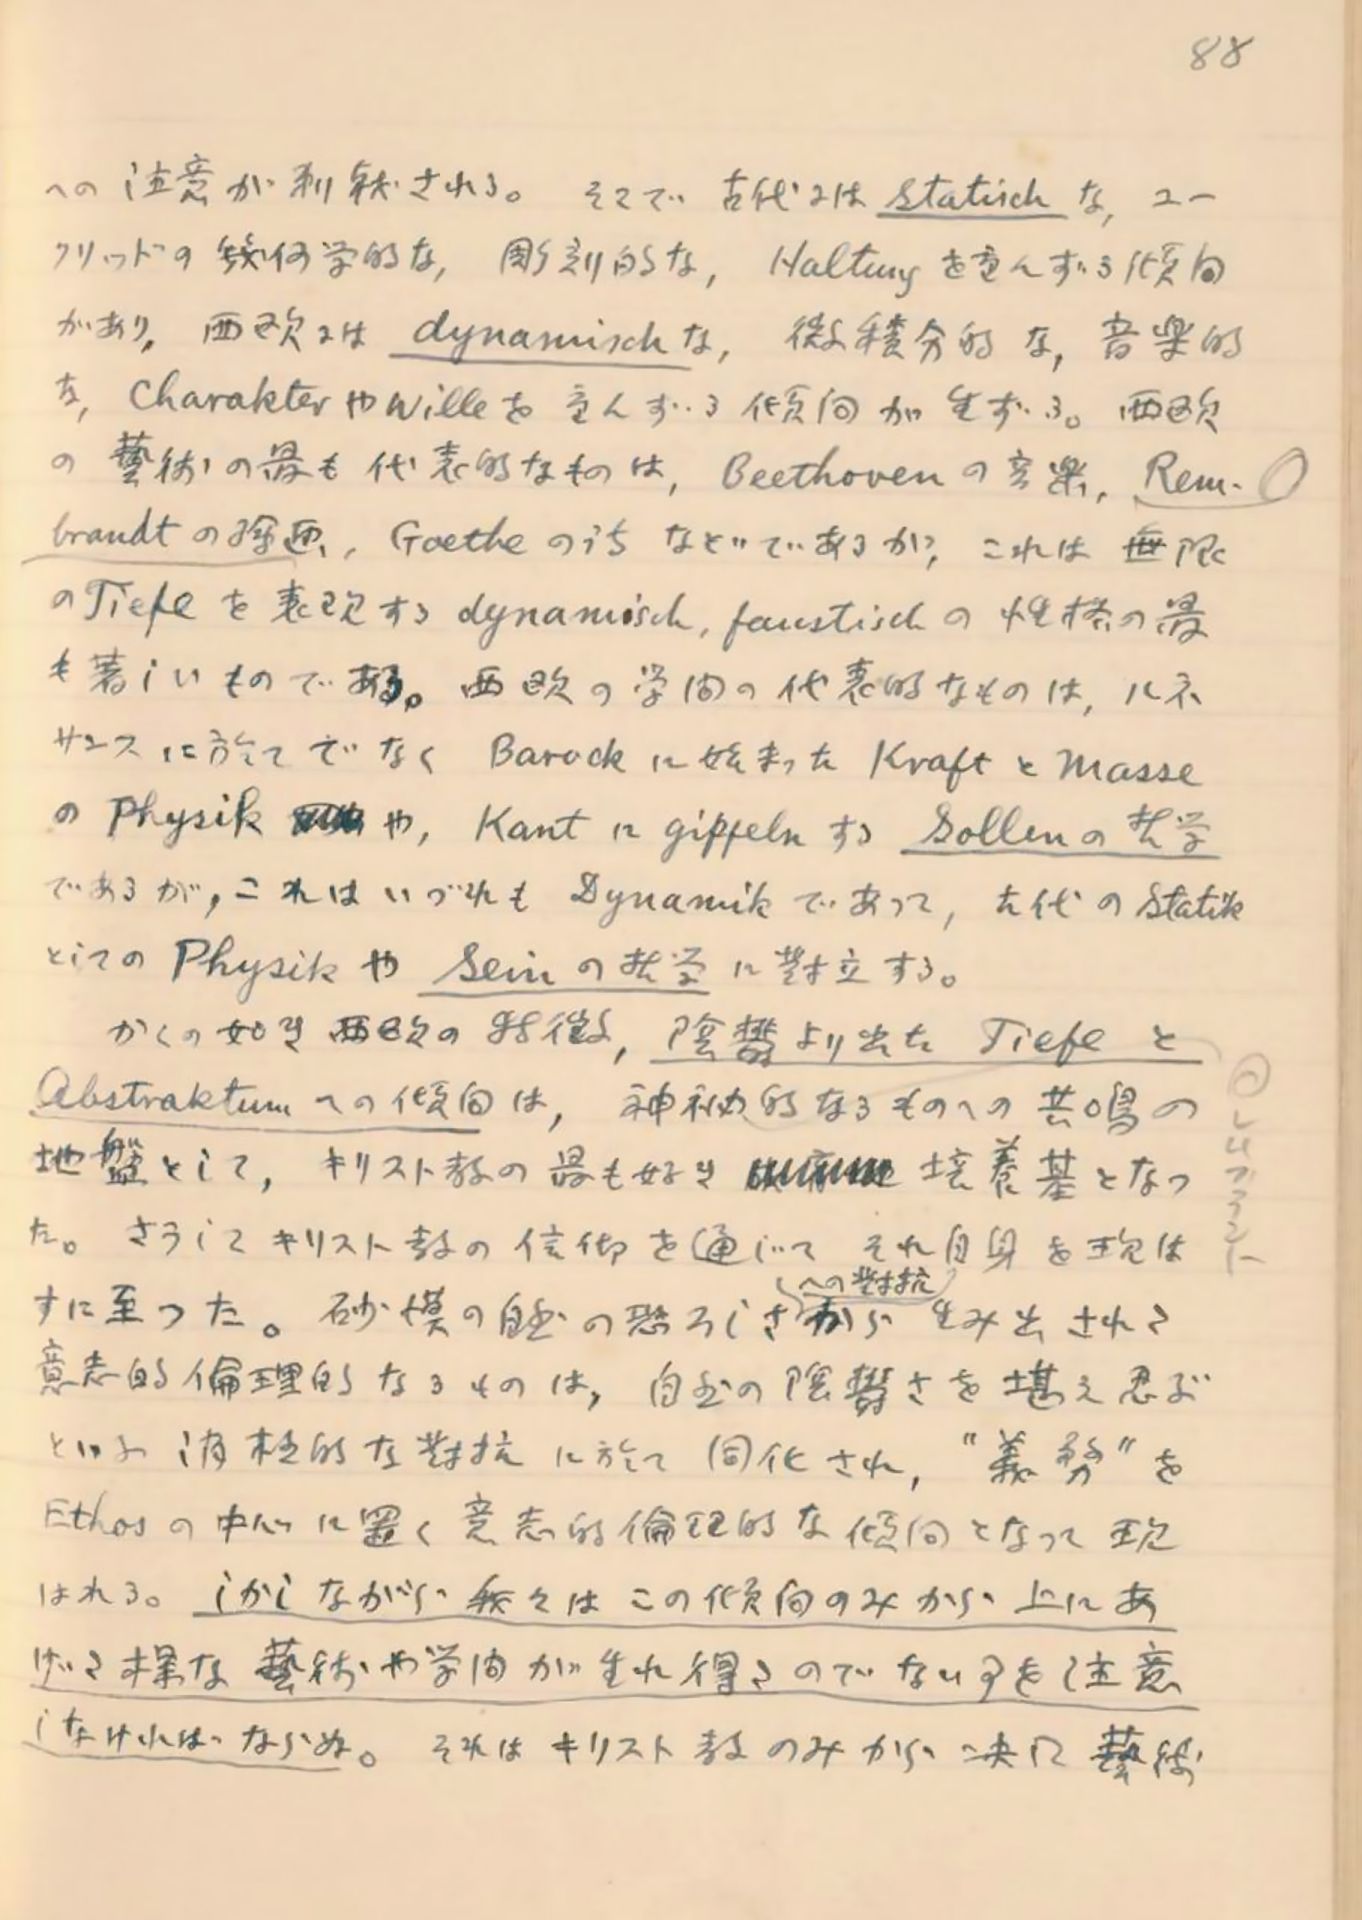 88
への注意が刺戟される。そこで古代には statisch な, ユー
クリッドの幾何学的な, 彫刻的な, Haltung を重んずる傾向
があり, 西欧には dynamisch な, 微積分的な, 音楽的
な, Charakter や Wille を重んずる傾向が生ずる。西欧
の藝術の最も代表的なものは, Beethoven の音楽, Rem-
brandt の繪画, Goethe の詩などであるが, これは無限
の Tiefe を表現する dynamisch, faustisch の性格の最
も著しいものである。西欧の学問の代表的なものは, ルネ
サンスに於てでなく Barock に始まった Kraft と Masse
の Physik や, Kant に gipfeln する Sollen の哲学
であるが, これはいづれも Dynamik であって, 古代の Statik
としての Physik や Sein の哲学に対立する。
かくの如き西欧の特徴, 陰鬱より出た Tiefe と
Abstraktum への傾向は, 神秘的なるものへの共鳴の
地盤として, キリスト教の最も好き 培養基となっ
た。さうしてキリスト教の信仰を通じてそれ自身を現は
への對抗
すに至つた。砂漠の自然の恐ろしさから生み出された
意志的倫理的なるものは, 自然の陰鬱さを堪え忍ぶ
といふ消極的な對抗に於て同化され, "義務" を
Ethos の中心に置く意志的倫理的な傾向となって現
はれる。しかしながら我々はこの傾向のみから上にあ
げた様な藝術や学問が生れ得たのでない事を注意
しなければならぬ。それはキリスト教のみから決して藝術
◎レムブラント